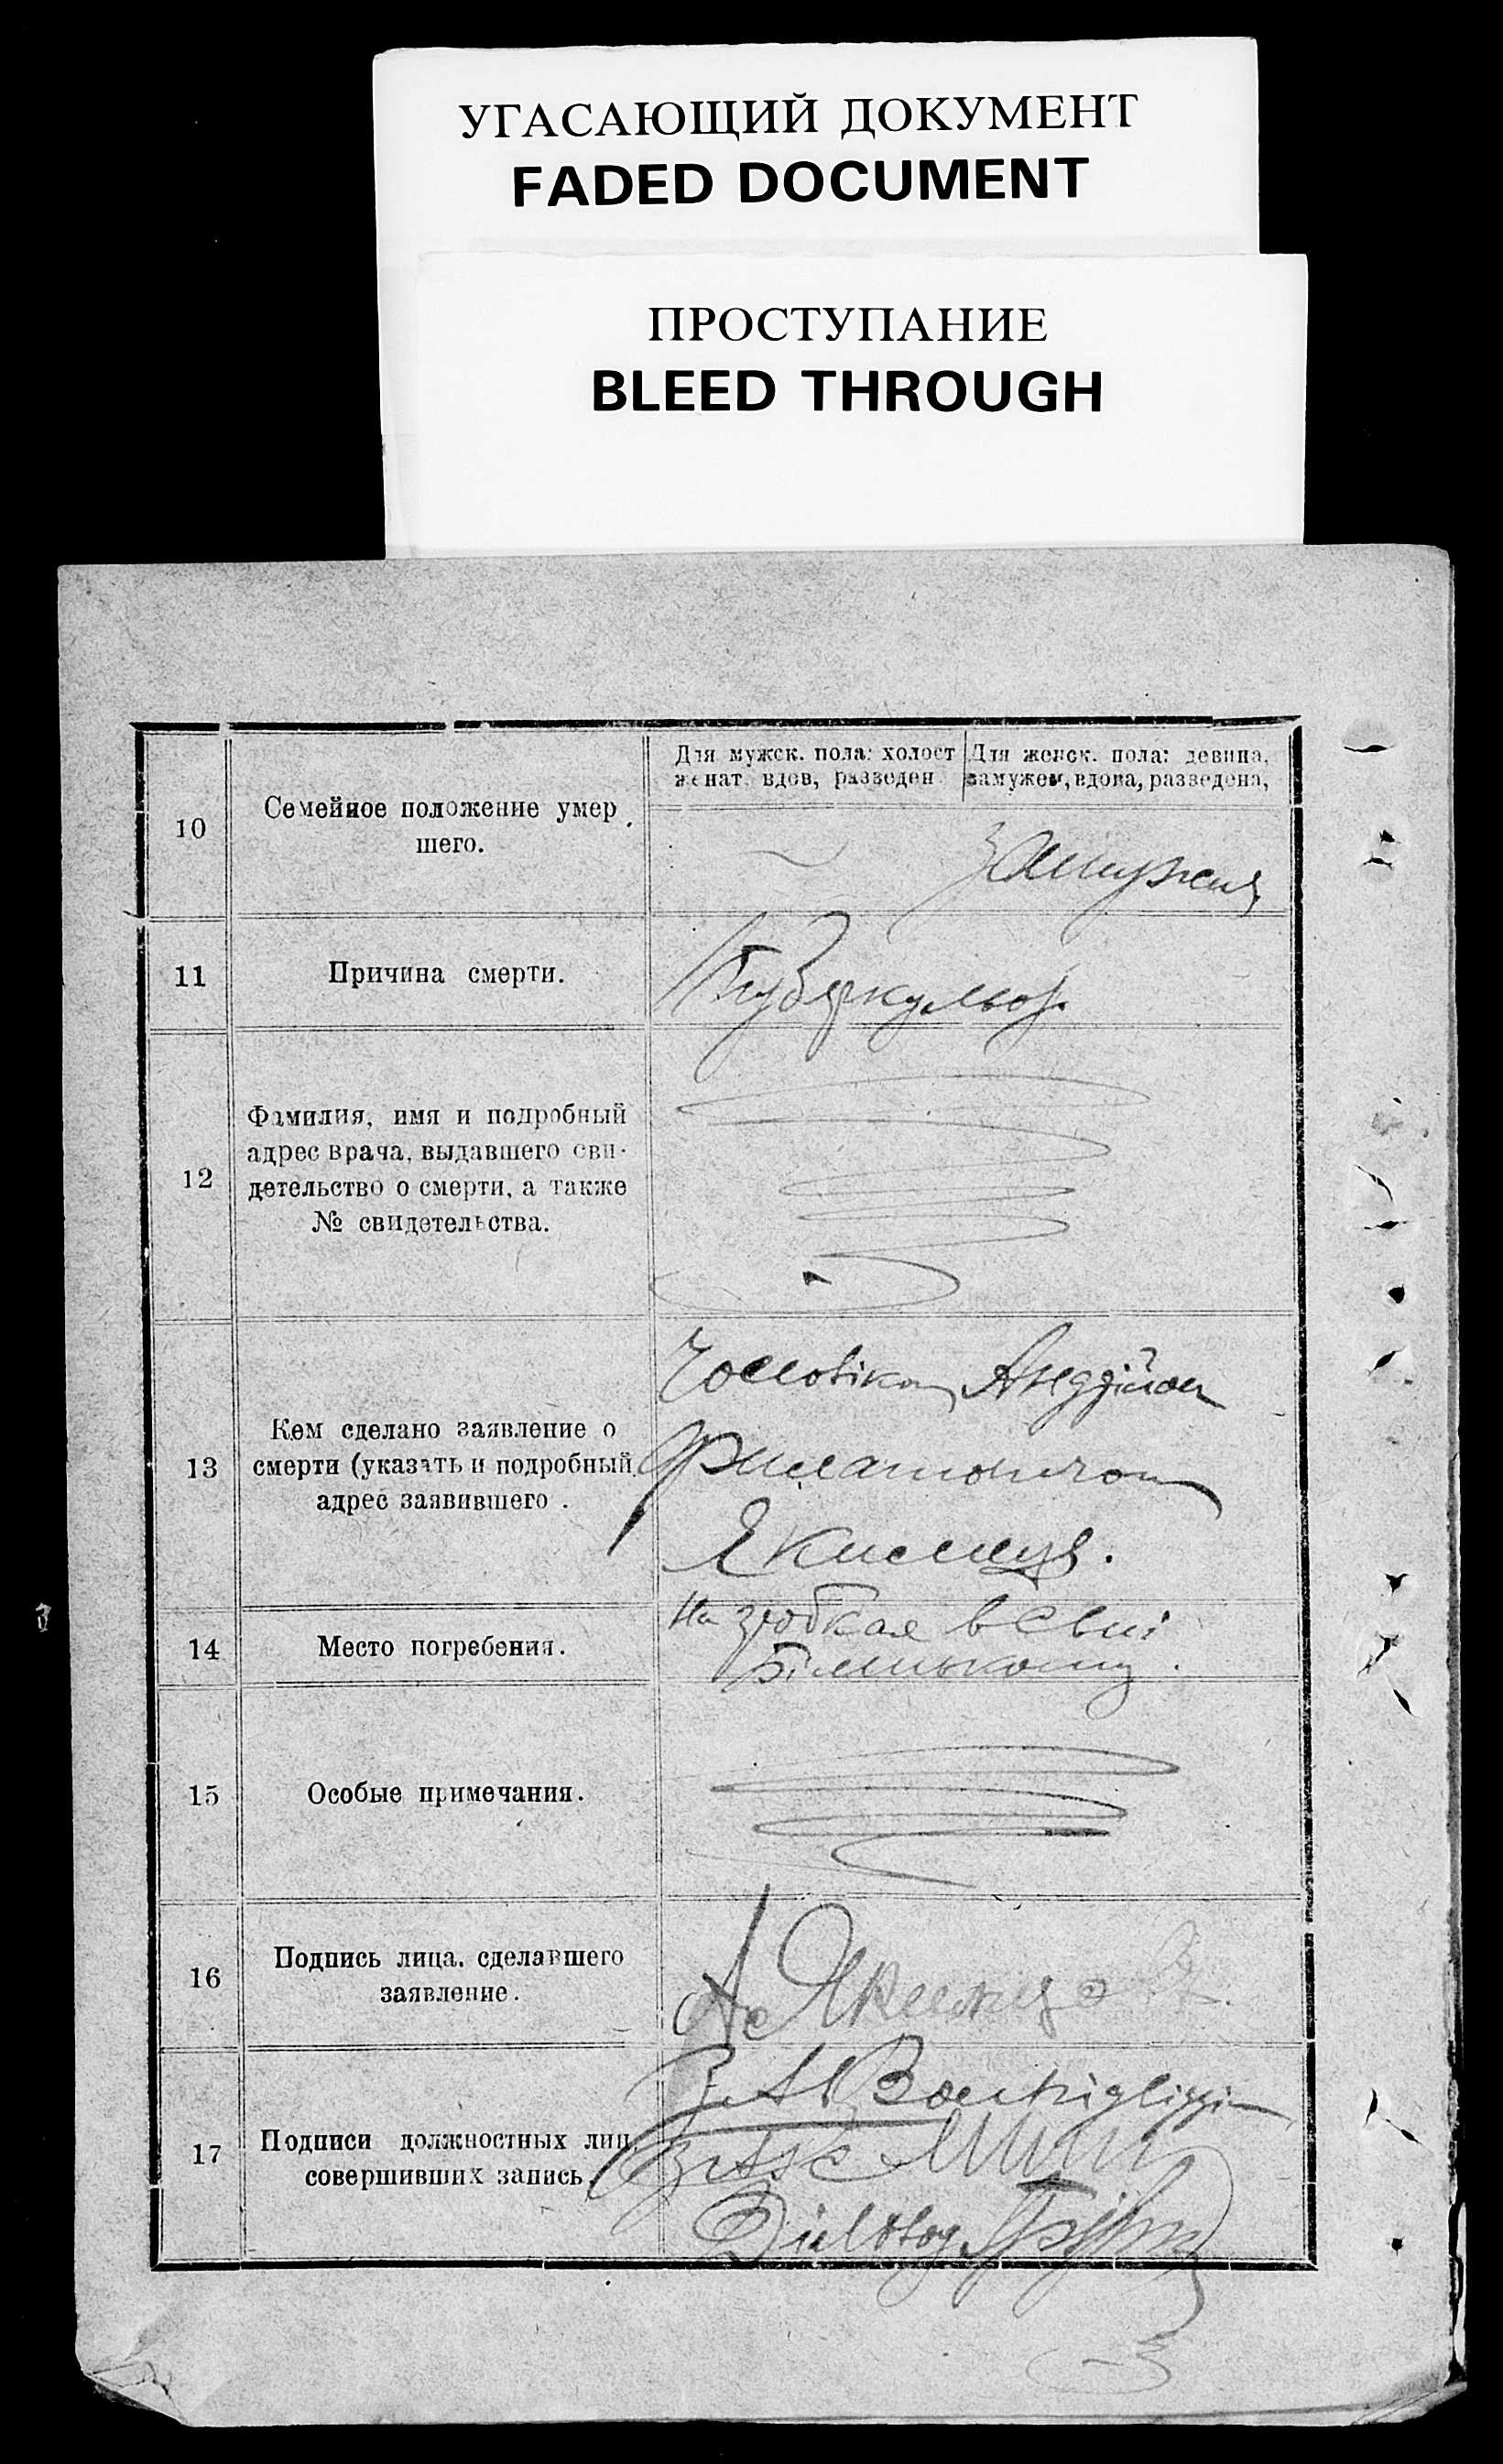 УГАСАЮЩИЙ ДОКУМЕНТ
FADED DOCUMENT
ПРОСТУПАНИЕ
BLEED THROUGH
Для мужск. пола: холост
женат, вдов, разведен
Для женск. пола: девица,
замужем, вдова, разведена,
10
Семейное положение умер
шего.
замужня
11
Причина смерти.
туберкульоз.
12
Фамилия, имя и подробный
адрес врача, выдавшего сви-
детельство о смерти, а также
№ свидетельства.
13
Кем сделано заявление о
смерти (указать и подробный
адрес заявившего .
Чоловіком Андрієм
Филатовичом
14
Место погребения.
На
15
Особые примечания.
16
Подпись лица, сделавшего
заявление.
А.
17
Подписи должностных лиц,
совершивших запись.
Діловод